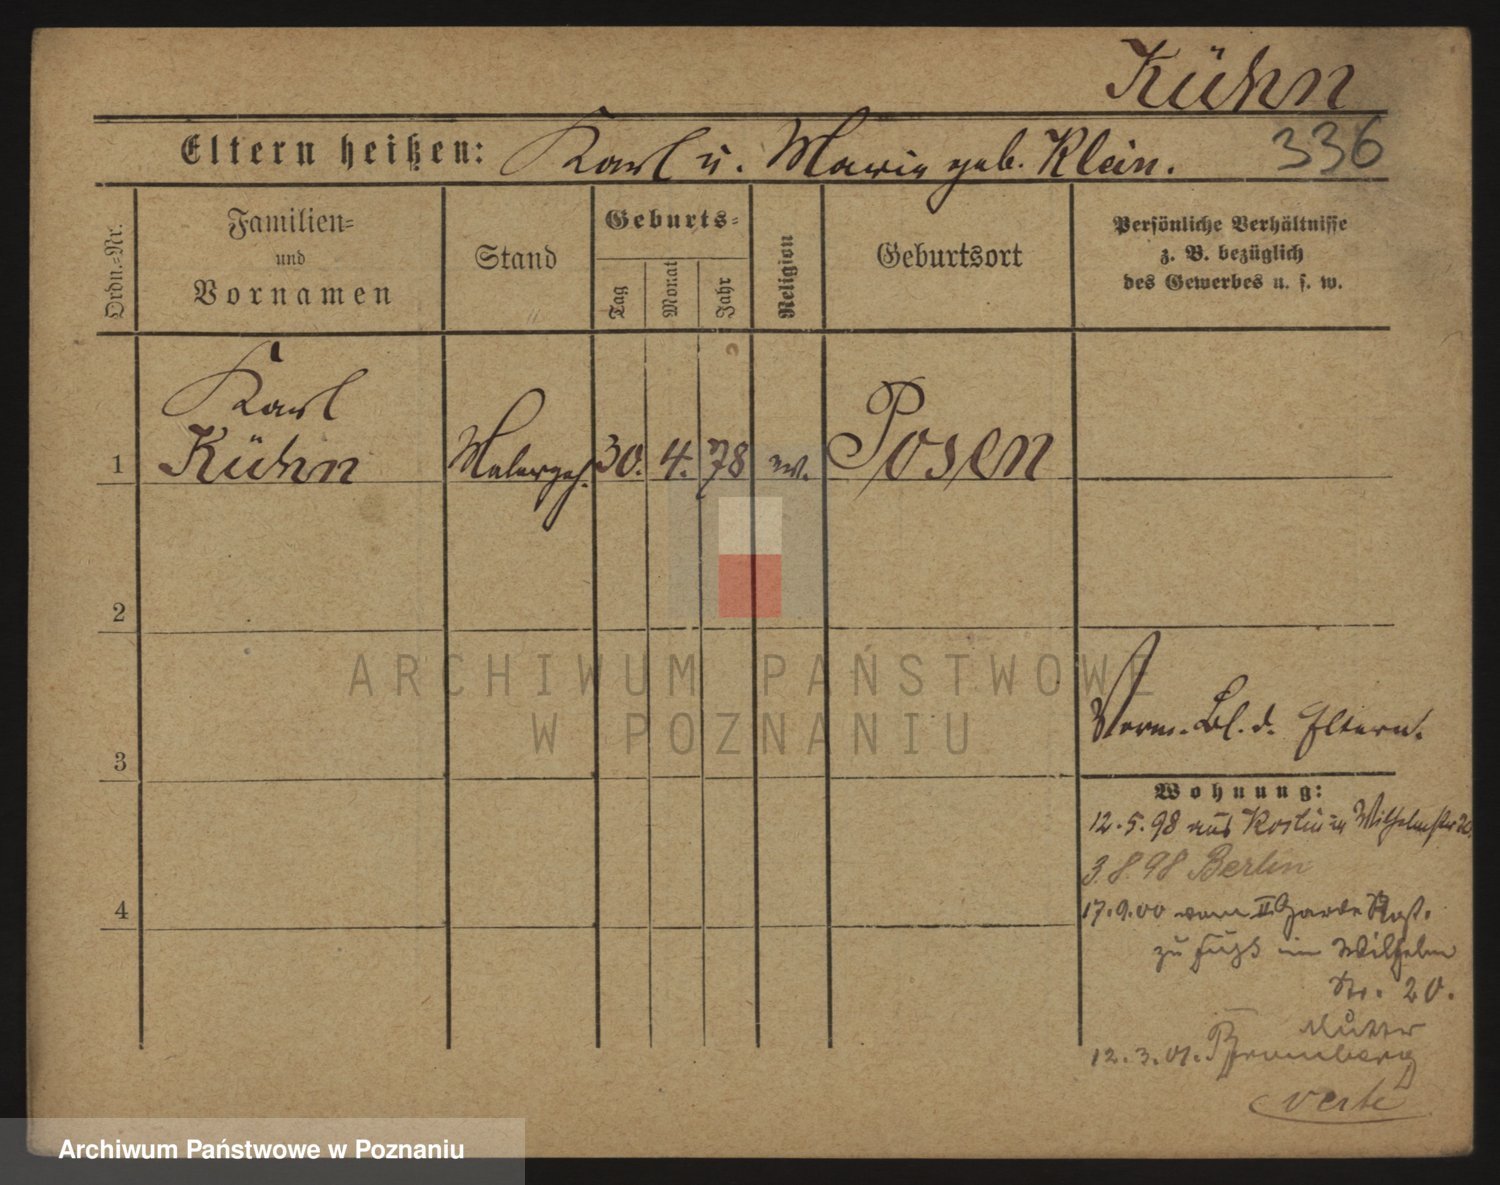 Kühn
Eltern heißen: Karl u. Marie geb. Klein.
336
Ordn.=Nr.
Familien=
und
Vornamen
Stand
Geburts=
Tag
Monat
Jahr
Religion
Geburtsort
Persönliche Verhältnisse
z. B. bezüglich
des Gewerbes u. s. w.
Karl
1 Kühn Malergeh. 30. 4. 78 Posen
2
ARCHIWUM PAŃSTWOWE
W POZNANIU
Verm. Bl. d. Eltern.
3
Wohnung:
12.5.98 aus Wilhelmstr 20.
3.8.98 Berlin
4
17.9.00 vom II Garde Rgt.
zu Fuß in Wilhelm
Str. 20.
Mutter
12.3.01. Bromberg
verte
Archiwum Państwowe w Poznaniu